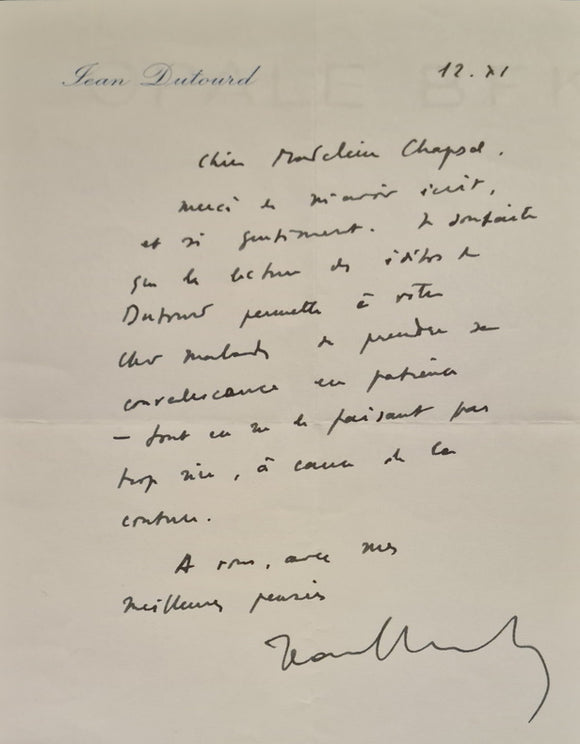 Jean Dutourd
12. XI
Chère Madeleine Chapsal.
merci de m'avoir écrit,
et si gentiment. Je souhaite
que la lecture des éditos de
Dutourd permette à votre
cher malade de prendre sa
convalescence en patience
– tout en ne le faisant pas
trop rire, à cause de la
couture.
A vous, avec mes
meilleures pensées